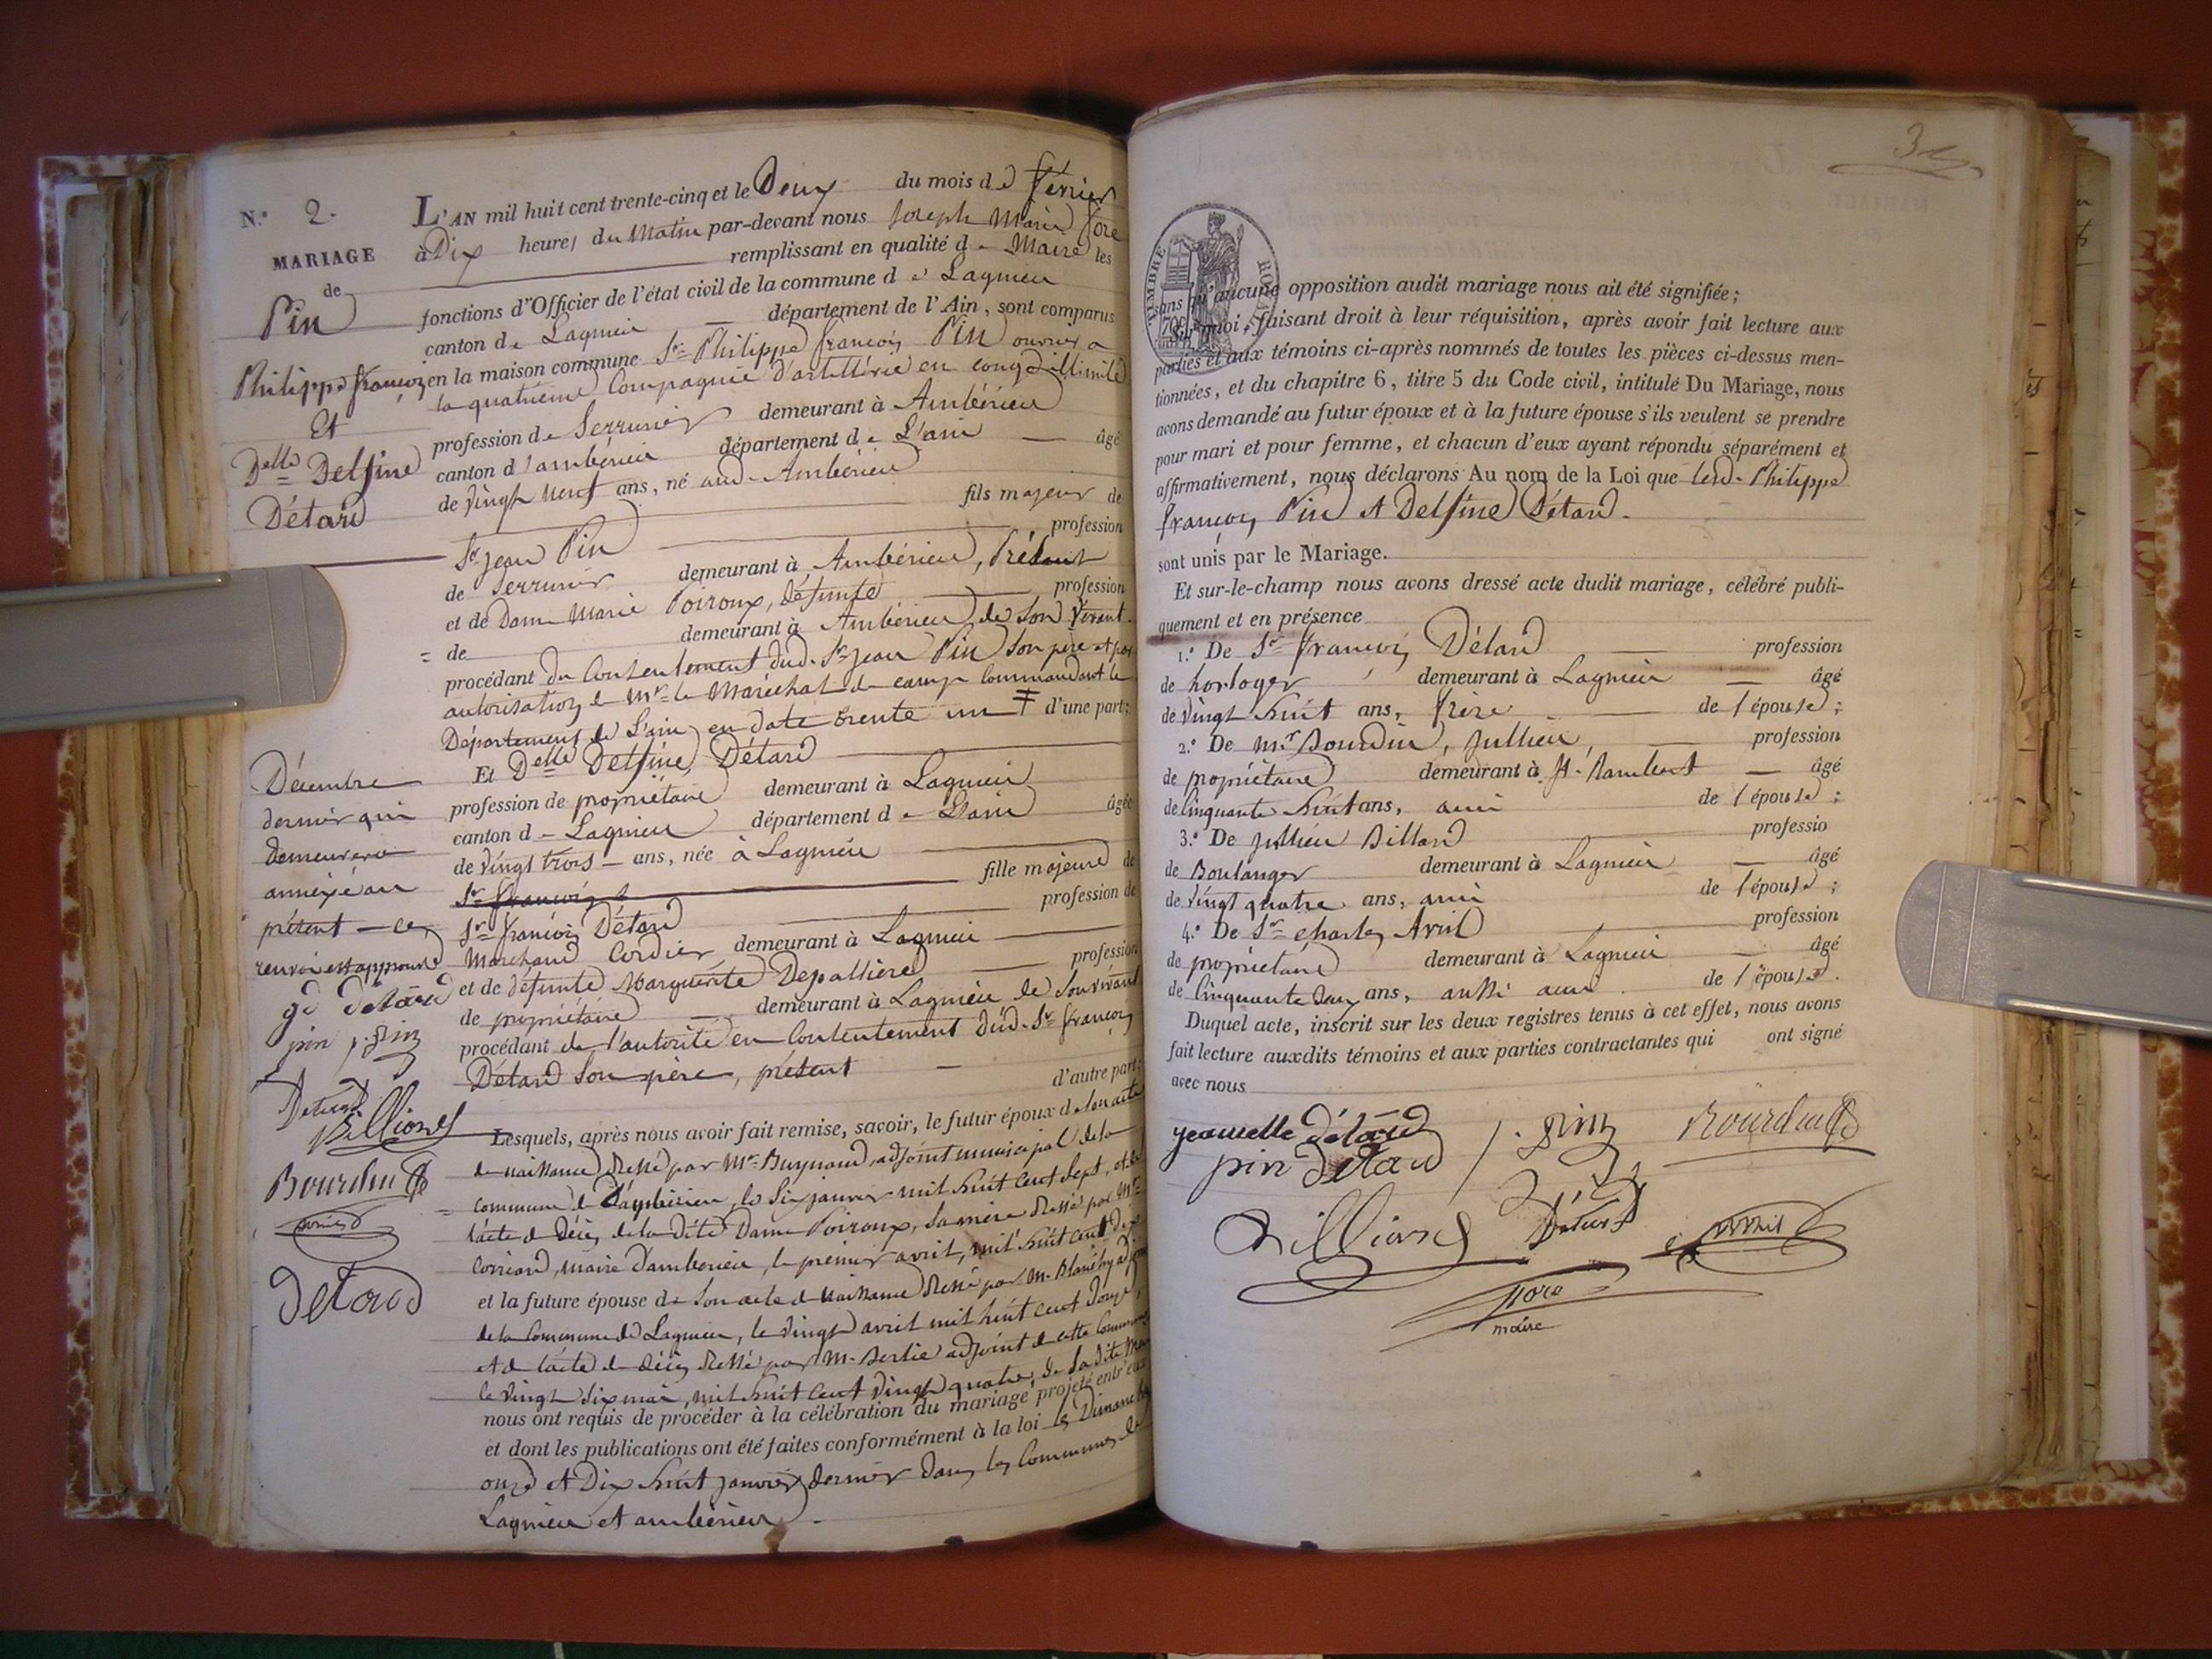 N.º 2.
MARIAGE
de
Pin
Philippe françois
Et
Delle Delfine
Détard
L'AN mil huit cent trente-cinq et le Deux du mois de février
à Dix heures du Matin par-devant nous Joseph Marie fore
remplissant en qualité de Maire les
fonctions d'Officier de l'état civil de la commune de Lagnieu
canton de Lagnieu département de l'Ain, sont comparus
en la maison commune Sr Philippe françois Pin ouvrier a
la quatrième Compagnie d'artillérie en congé illimité
profession de Serrurier demeurant à Ambérieu
canton d'ambérieu département de L'ain âgé
de vingt neuf ans, né aud. Ambérieu
fils majeur de
Sr Jean Pin profession
de Serrurier demeurant à Ambérieu, Présent
et de Dame Marie Poiroux, défunte profession
de demeurant à Ambérieu de son vivant
procédant du Consentement dud. Sr Jean Pin son père et par
autorisation de Mr le Maréchal de camp Commandant le
Département de L'ain en date trente un ‡ d'une part;
Et Delle Delfine Détard
profession de propriétaire demeurant à Lagnieu
canton de Lagnieu département de L'ain âgée
de vingt trois ans, née à Lagnieu
fille majeure de
Sr françois Détard profession de
Marchand Cordier demeurant à Lagnieu
et de défunte Marguerite Depallière profession
de propriétaire demeurant à Lagnieu de son vivant
procédant de l'autorité en Consentement dud. Sr françois
Détard son père, présent d'autre part;
Lesquels, après nous avoir fait remise, savoir, le futur époux de son acte
de naissance dressé par Mr Buynand, adjoint municipal de la
commune d'ambérieu, le Six janvier mil huit cent Sept, et de
l'acte de Décès de la dite Dame Poiroux, sa mère dressé par Mr
Corriard, maire d'amberieu, le premier avril, mil huit cent dix
et la future épouse de son acte de naissance dressé par M. Blanchy adjoint
de la Commune de Lagnieu, le vingt avril mil huit cent douze,
et de l'acte de décès dressé par M. Berlie adjoint de cette Commune
le vingt six mai, mil huit cent vingt quatre, de sa dite Mère
nous ont requis de procéder à la célébration du mariage projeté entr'eux
et dont les publications ont été faites conformément à la loi les Dimanches
onze et Dix huit janvier dernier dans les Communes de
Lagnieu et ambérieu.
Décembre
dernier qui
demeurera
annexé au
présent — ce
renvoi est approuvé
gd Détard
pin j. Pin
Detard
Billion
Bourdin
avril
Detard
3
TIMBRE ROYAL
70c
sans qu'aucune opposition audit mariage nous ait été signifiée;
Sur quoi, faisant droit à leur réquisition, après avoir fait lecture aux
parties et aux témoins ci-après nommés de toutes les pièces ci-dessus men-
tionnées, et du chapitre 6, titre 5 du Code civil, intitulé Du Mariage, nous
avons demandé au futur époux et à la future épouse s'ils veulent se prendre
pour mari et pour femme, et chacun d'eux ayant répondu séparément et
affirmativement, nous déclarons Au nom de la Loi que led. Philippe
françois Pin et Delfine Détard.
sont unis par le Mariage.
Et sur-le-champ nous avons dressé acte dudit mariage, célébré publi-
quement et en présence
1.º De Sr françois Détard profession
de horloger demeurant à Lagnieu âgé
de vingt huit ans, frère de l'épouse;
2.º De Mr Bourdin, Jullien, profession
de propriétaire demeurant à St. Rambert âgé
de Cinquante huit ans, ami de l'épouse;
3.º De Jullien Billard professio
de Boulanger demeurant à Lagnieu âgé
de vingt quatre ans, ami de l'épouse;
4.º De Sr Charles Avril profession
de propriétaire demeurant à Lagnieu âgé
de Cinquante deux ans, aussi ami de l'épouse.
Duquel acte, inscrit sur les deux registres tenus à cet effet, nous avons
fait lecture auxdits témoins et aux parties contractantes qui ont signé
avec nous
Détard j. Pin Bourdin
pin Detard
Detard avril
fore
maire